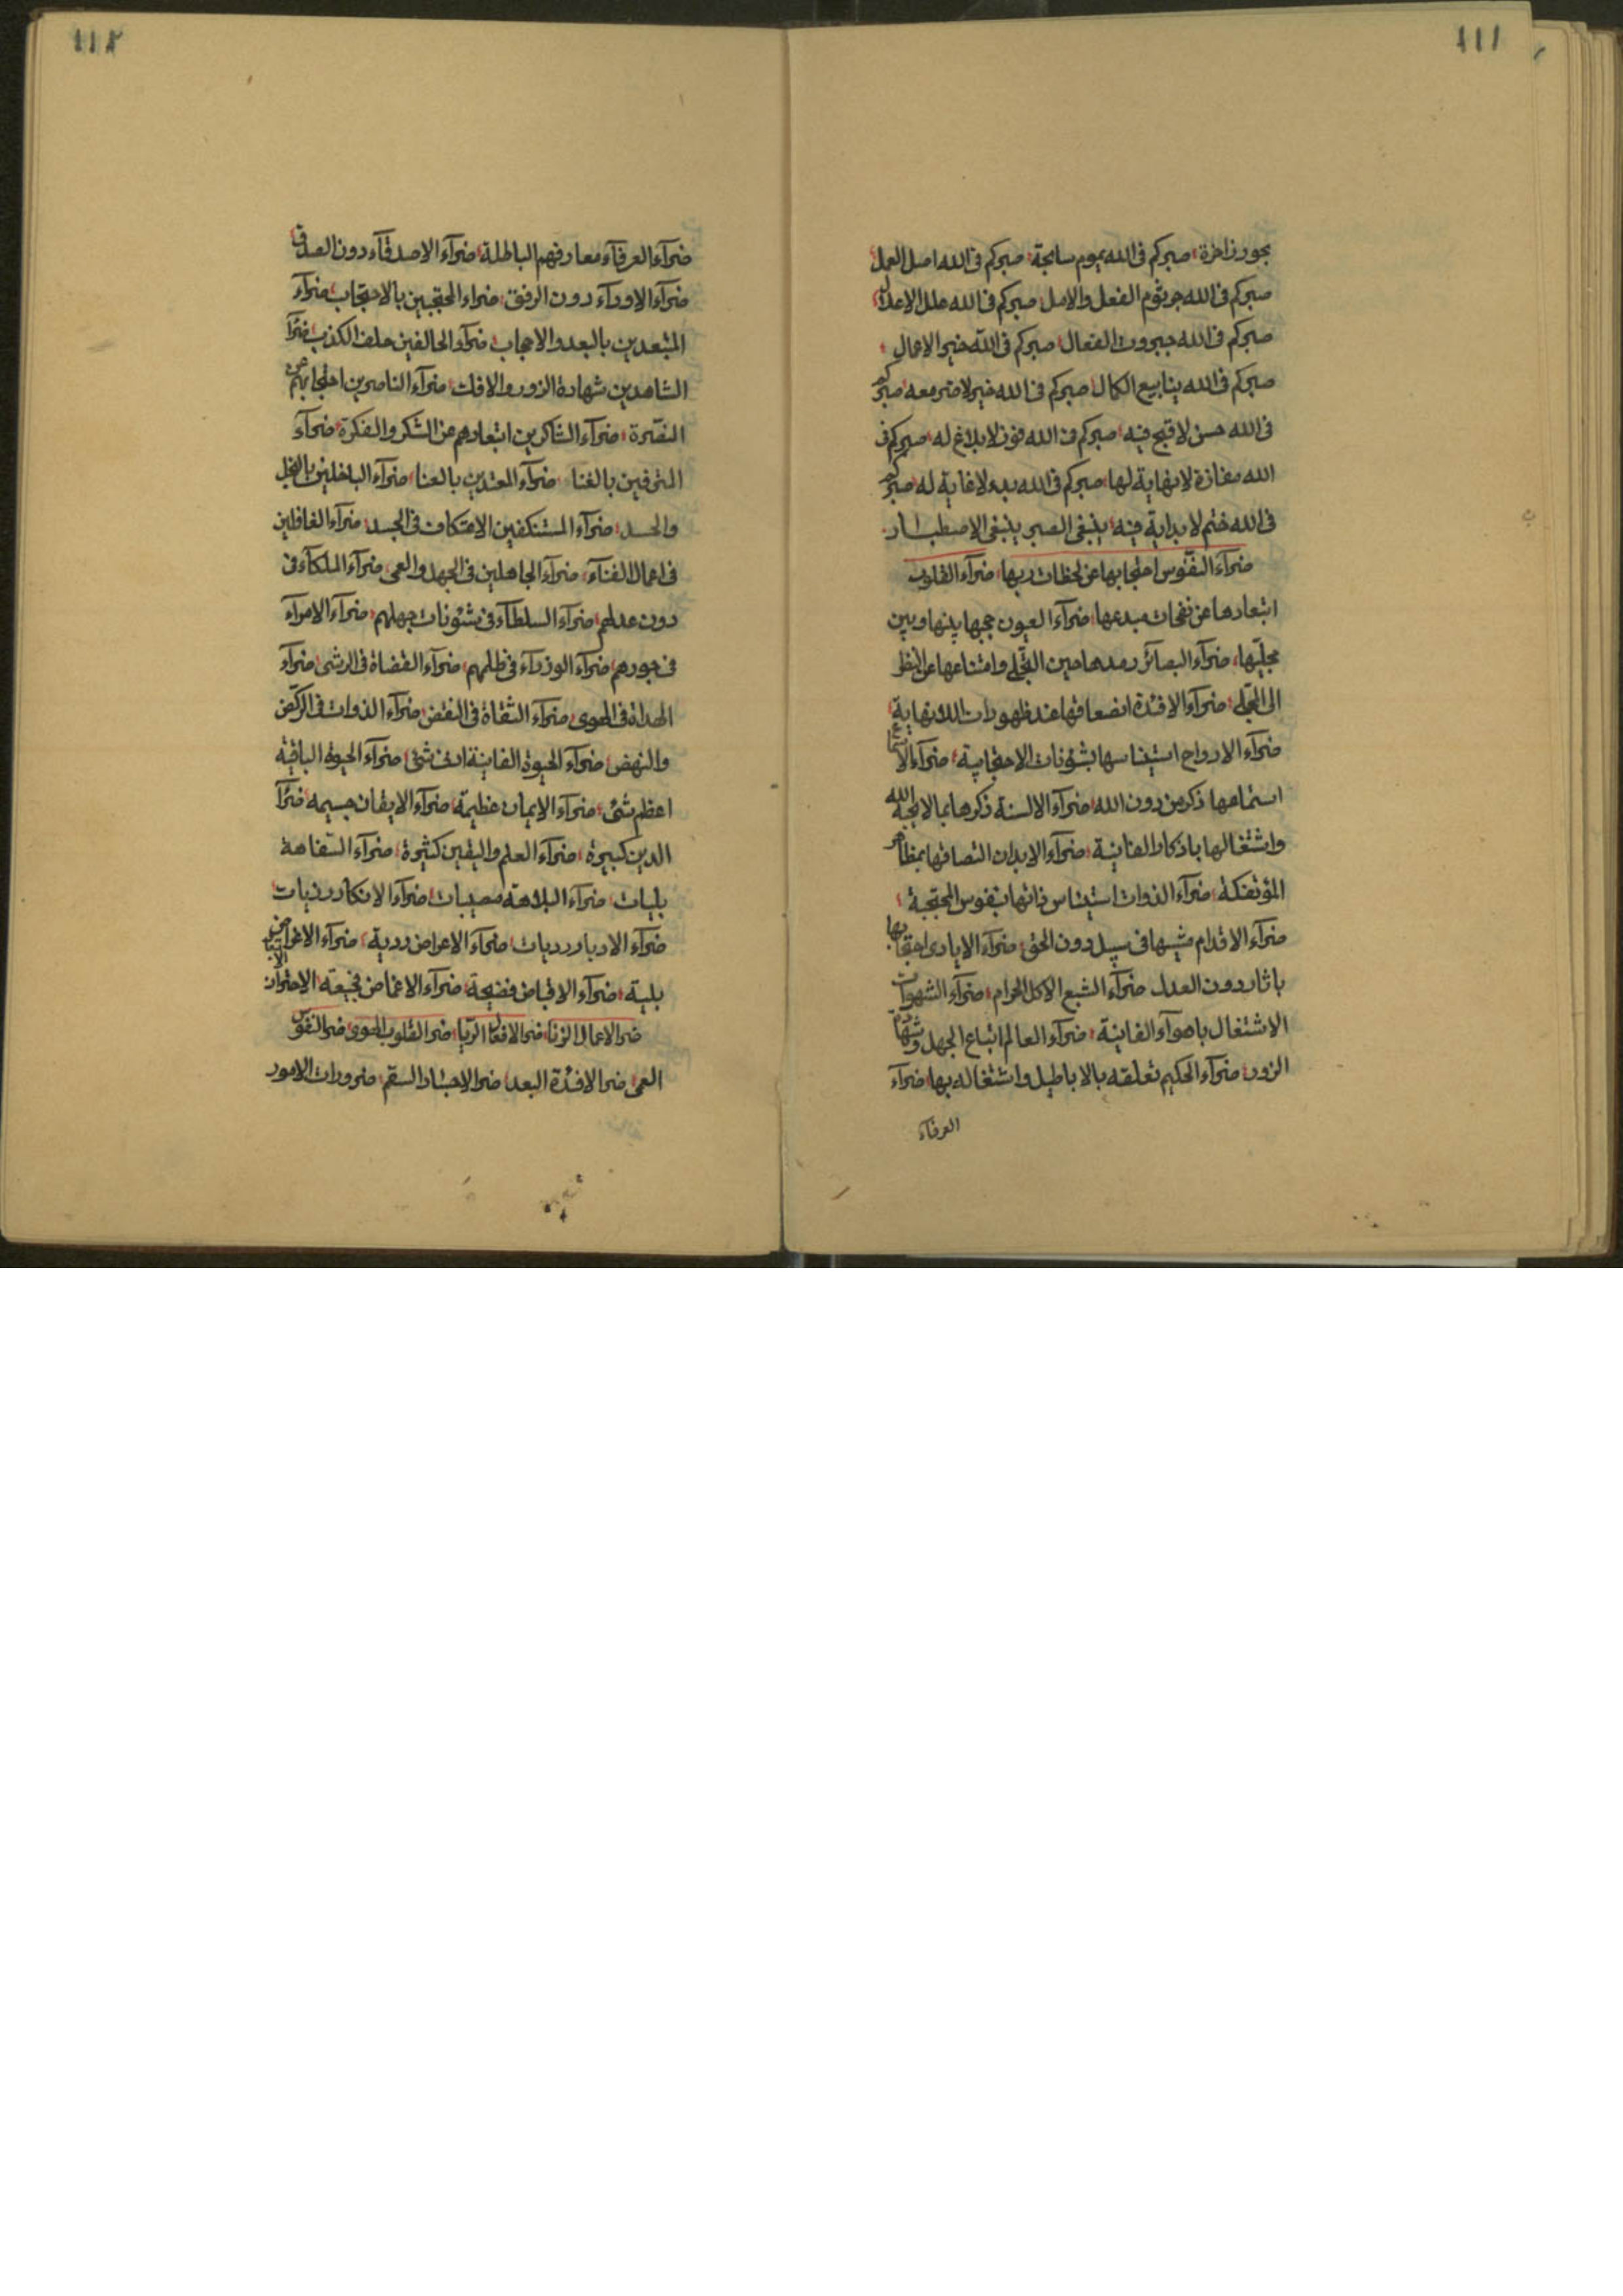 ١١١
بحور زاخرة صبركم فى الله يموم سابحة صبركم فى الله اصل العمل
صبركم فى الله جرثوم الفعل والامل صبركم فى الله علل الاعلال
صبركم فى الله جبروت الفعال صبركم فى الله خير الاعمال
صبركم فى الله ينابيع الكمال صبركم فى الله خير لا ضر معه صبركم
فى الله حسن لا قبح فيه صبركم فى الله فوز لا بلاغ له صبركم فى
الله مفازة لا نهاية لها صبركم فى الله بدء لا غاية له صبركم
فى الله ختم لا بداية فيه ينبغى الصبر ينبغى الاصطبار
ضرآء النفوس احتجابها عن لحظات ربها ضرآء القلوب
ابتعادها عن نفحات مبدعها ضرآء العيون حجبها بينها وبين
مجليّها ضرآء البصائر رمدها حين التجلى وامتناعها عن النظر
الى المجلى ضرآء الافئدة انصعاقها عند ظهورات اللانهاية
ضرآء الارواح استيناسها بشؤنات الاحتجابية ضرآء الاسماع
استماعها ذكر من دون الله ضرآء الالسنة ذكرها بما لا يحبه الله
واشتغالها باذكار الفانية ضرآء الابدان التصاقها بمظاهر
المؤتفكة ضرآء الذوات استيناس ذاتها بنفوس المحتجبة
ضرآء الاقدام مشيها فى سبيل دون الحق ضرآء الايادى احتجابها
باثار دون العدل ضرآء الشبع الاكل الحرام ضرآء الشهوات
الاشتغال باهوآء الفانية ضرآء العالم اتباع الجهل وشهادة
الزور ضرآء الحكيم تعلقه بالاباطيل واشتغاله بها ضرآء
العرفآء
١١٢
ضرآء العرفآء معارفهم الباطلة ضرآء الاصدقآء دون الصدق
ضرآء الاودآء دون الرفق ضراء المحتجبين بالاحتجاب ضرآء
المبتعدين بالبعد والاعجاب ضرآء الحالفين حلف الكذب ضرّآء
الشاهدين شهادة الزور والافك ضرآء الناصرين احتجابهم عن
النصرة ضرآء الشاكرين ابتعادهم عن الشكر والفكرة ضرآء
المترفين بالغنا ضرآء المعتدين بالعنا ضرآء الباخلين بالبخل
والحسد ضرآء المستنكفين الاعتكاف فى الجسد ضرآء الغافلين
فى اعمال الفنآء ضرآء الجاهلين فى الجهل والعمى ضرآء الملكآء فى
دون عدلهم ضرآء السلطآء فى شئونات جهلهم ضرآء الامرآء
فى جورهم ضرآء الوزرآء فى ظلمهم ضرآء القضاة فى الرشى ضرآء
الهداة فى الهوى ضرآء الثقاة فى النقض ضرآء الذوات فى الركض
والنهض ضرآء الحيوة الفانية ادنى شئ ضرآء الحيوة الباقية
اعظم شئ ضرآء الايمان عظيمة ضرآء الايقان جسيمه ضرّآء
الدين كبيرة ضرآء العلم واليقين كثيرة ضرآء السفاهة
بليات ضرآء البلاهة مصيبات ضرآء الانكار رزيات
ضرآء الادبار رديات ضرآء الاعراض ردية ضرآء الاغراض
بلية ضرآء الاقباض فضيحة ضرآء الاغماض فجيعة الاحتراز
ضر الاعمال الزنا ضر الافعال الريّا ضر القلوب الهوى ضر النفوس
العمى ضر الافئدة البعد ضر الاجساد السقم ضرورات الامور